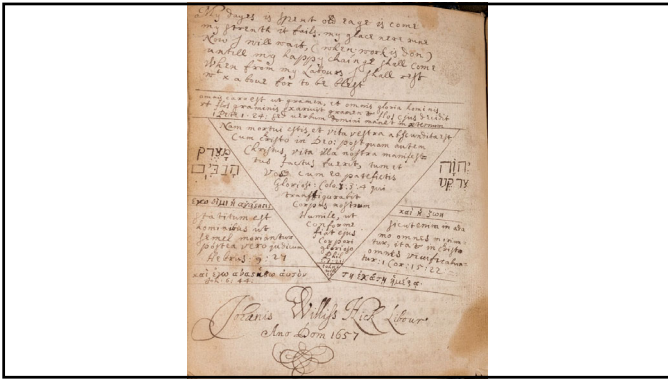 My dayes is spent old age is come
my strength it fails, my glace nere rune
Now I will wait, (when work is don)
untill my happy chainge shall come
When from my Labours I shall rest
wt a bove for to be blest
omnis caro est ut gramen, et omnis gloria hominis
ut flos graminis exaruit gramen & flos ejus decidit
1 Pet: 1-24: sed verbum Domini manet in æternum
Nam mortui estis, et vita vestra abscondita est
Cum Cristo in Deo; postquam autem
Christus, vita illa nostra manifesto
tus factus fuerit, tum et
vos cum eo patefietis
Gloriosi: Colo: 3: 4 qui
transfigurabit
Corpus nostrum
Humile, ut
Conforme
fiat ejus
Corpori
glorioso
Phil
יהוה
צדקנו
εγω ειμι η αναστασις
statutum est
hominibus ut
semel moriantur
postea vero judicium
Hebræos: 9: 27
και εγω αναστησω αυτον
Joh: 6: 44:
και η ζωη
sicut enim in Ada
mo omnes moriun
tur, ita et in Cristo
omnes vivificabun
tur: 1 Cor: 15: 22
τη εσχατη ημερα.
Johanis Willyss Hick Libour
Ano Dom 1657